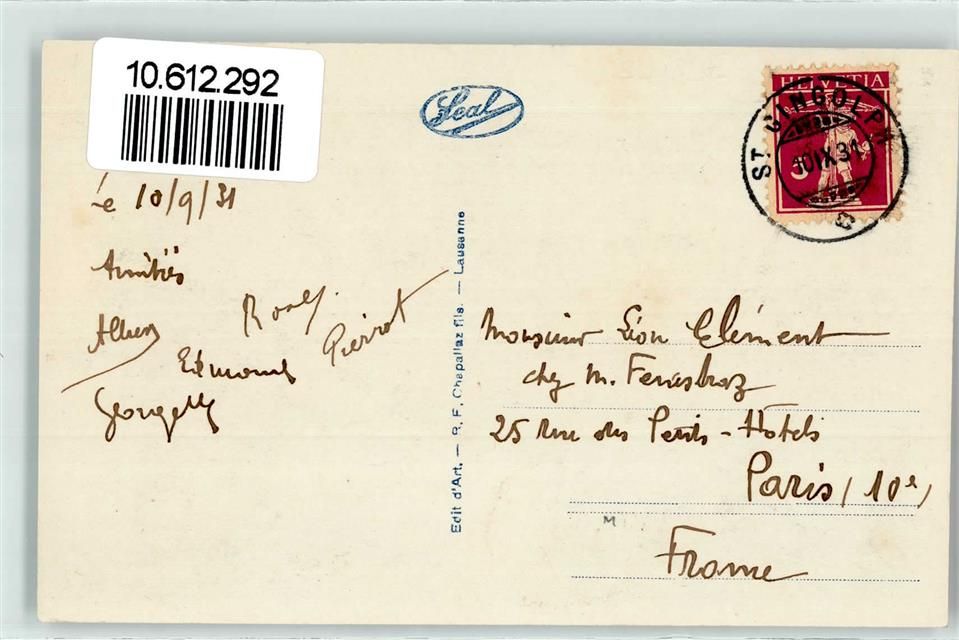 10.612.292
Seal
HELVETIA
ST. GINGOLPH
10 IX 31
5
Le 10/9/31
Amitiés
Albert
Edmond
Pierrot
Georgette
Edit d'Art. — R. F. Chapallaz fils. — Lausanne
Monsieur Léon Clément
chez M.
25 Rue des Petits-Hôtels
Paris (10e)
France
M